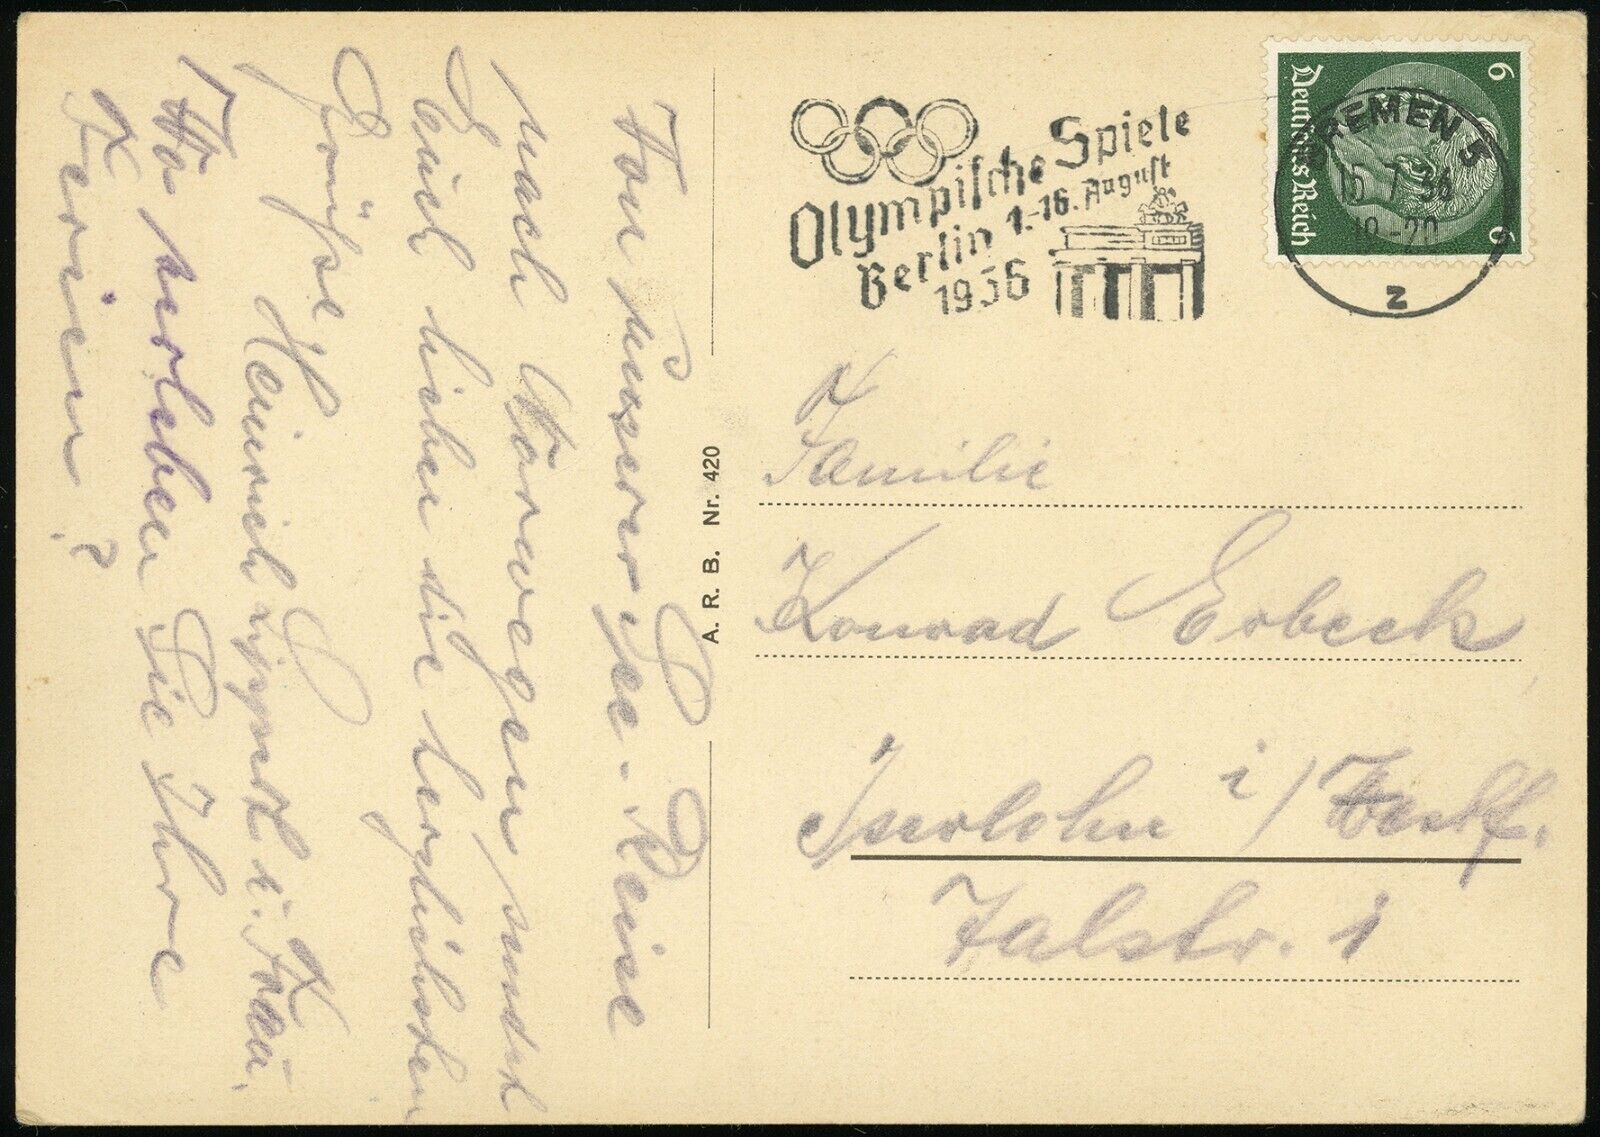 Von unserer See-Reise
nach Norwegen sendet
Euch lieben die herzlichsten
Grüße
Heinrich u. Frau.
Wo verleben Sie Ihre
Ferien?
A. R. B. Nr. 420
Olympische Spiele
Berlin 1.-16. August
1936
Deutsches Reich
6
6
BREMEN 5
15.7.36
19-20
z
Familie
Konrad Erbeck
Iserlohn i/Westf.
Talstr. 1